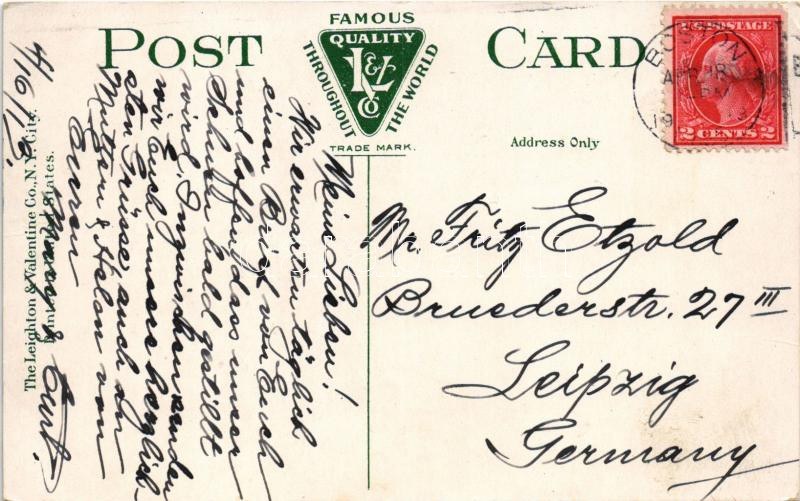 POST CARD
FAMOUS
QUALITY
THROUGHOUT
THE WORLD
L&V
Co
TRADE MARK.
BOSTON
APR
PM
19
U.S. POSTAGE
2 CENTS 2
Address Only
Mr Fritz Etzold
Bruederstr. 27 III
Leipzig
Germany
Meine Lieben!
Wir erwarten täglich
einen Brief von Euch
und hoffen dass unser
Sehnen bald gestillt
wird. Inzwischen senden
wir Euch unsere herzlich-
sten Grüsse auch an
Muttern & Helen von
Euren
& Curt.
4/16/13.
The Leighton & Valentine Co., N.Y. City.
Printed in United States.